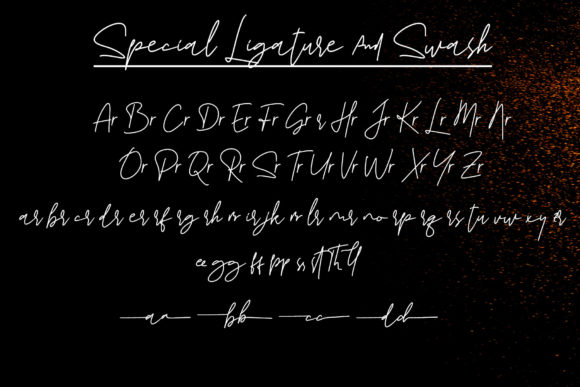 Special Ligature And Swash
Ar Br Cr Dr Er Fr Gr r Hr Jr Kr Lr Mr Nr
Or Pr Qr Rr Sr Tr Ur Vr Wr Xr Yr Zr
ar br cr dr er rf rg rh rr ir jk rr lr mr no rp rq rs tu vw xy zr
ee gg ff pp ss st Th ll
aa bb cc dd